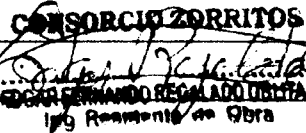 CONSORCIO ZORRITOS
EDGAR FERNANDO REGALADO OBLITA
Ing Residente de Obra